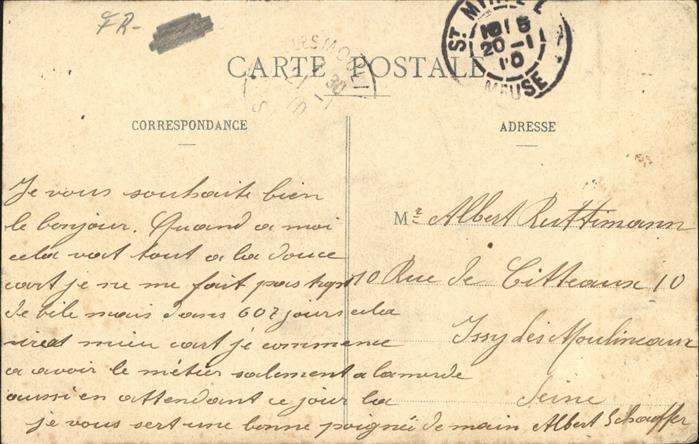 FR-
CARTE POSTALE
ST MIHIEL
20-1
10
MEUSE
CORRESPONDANCE
ADRESSE
Je vous souhaite bien
le bonjour. Quand a moi
cela vat tout a la douce
cart je ne me fait pas trop
de bile mais dans 602 jours cela
mieu cart je commence
a avoir le métier salement a la merde
aussi en attendant ce jour la
je vous sert une bonne poignée de main Albert Schaeffer
Mr Albert Ruttimann
10 Rue de Citteaux 10
Issy les Moulineaux
Seine